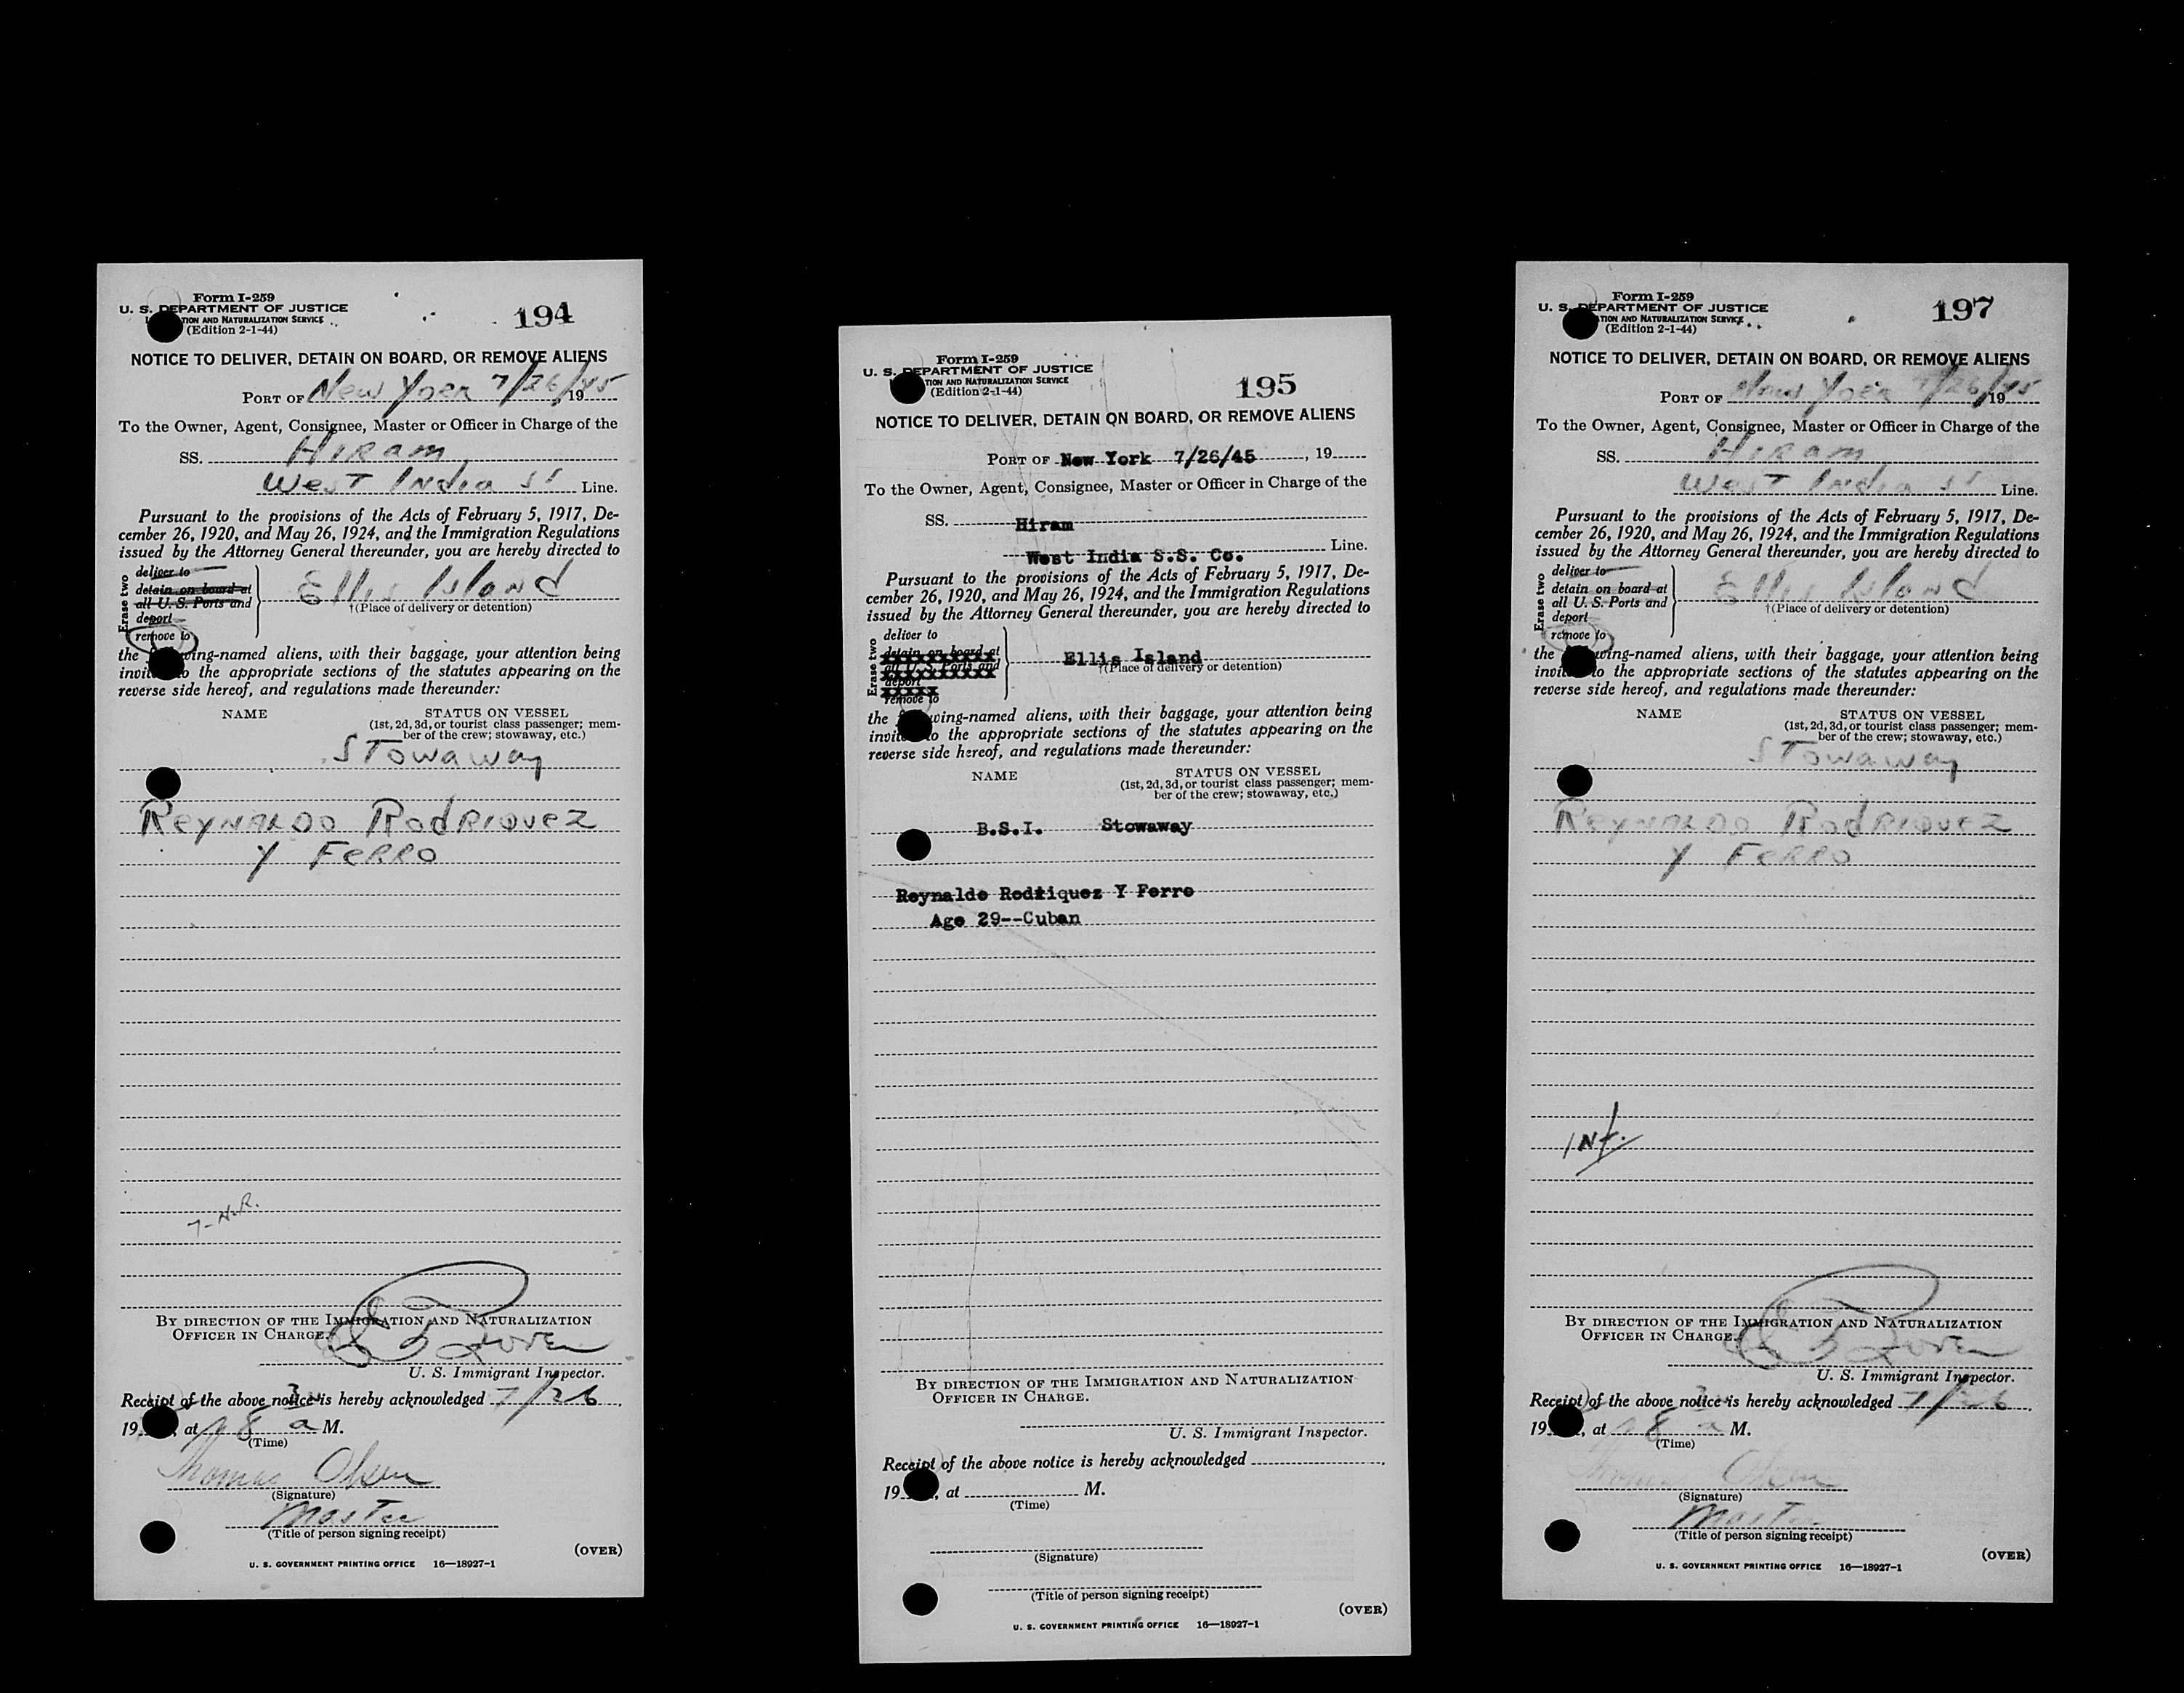 Form I-259
U. S. DEPARTMENT OF JUSTICE
TION AND NATURALIZATION SERVICE
(Edition 2-1-44)
194
NOTICE TO DELIVER, DETAIN ON BOARD, OR REMOVE ALIENS
PORT OF New York 7/26/45, 19
To the Owner, Agent, Consignee, Master or Officer in Charge of the
SS. Hiram
West India SS Line.
Pursuant to the provisions of the Acts of February 5, 1917, De-
cember 26, 1920, and May 26, 1924, and the Immigration Regulations
issued by the Attorney General thereunder, you are hereby directed to
Erase two
deliver to
detain on board at
all U. S. Ports and
deport
remove to
Ellis Island
†(Place of delivery or detention)
the wing-named aliens, with their baggage, your attention being
invit to the appropriate sections of the statutes appearing on the
reverse side hereof, and regulations made thereunder:
NAME STATUS ON VESSEL
(1st, 2d, 3d, or tourist class passenger; mem-
ber of the crew; stowaway, etc.)
Stowaway
Reynaldo Rodriquez
Y Ferro
7-H.R.
BY DIRECTION OF THE IMMIGRATION AND NATURALIZATION
OFFICER IN CHARGE.
U. S. Immigrant Inspector.
Receipt of the above notice is hereby acknowledged 7/26,
19 , at 8 30 a M.
(Time)
Thomas Olsen
(Signature)
Master
(Title of person signing receipt)
(OVER)
U. S. GOVERNMENT PRINTING OFFICE 16—18927-1
Form I-259
U. S. DEPARTMENT OF JUSTICE
TION AND NATURALIZATION SERVICE
(Edition 2-1-44)
195
NOTICE TO DELIVER, DETAIN ON BOARD, OR REMOVE ALIENS
PORT OF New York 7/26/45, 19
To the Owner, Agent, Consignee, Master or Officer in Charge of the
SS. Hiram
West India S.S. Co. Line.
Pursuant to the provisions of the Acts of February 5, 1917, De-
cember 26, 1920, and May 26, 1924, and the Immigration Regulations
issued by the Attorney General thereunder, you are hereby directed to
Erase two
deliver to
detain on board at
all U. S. Ports and
deport
remove to
Ellis Island
†(Place of delivery or detention)
the wing-named aliens, with their baggage, your attention being
invite to the appropriate sections of the statutes appearing on the
reverse side hereof, and regulations made thereunder:
NAME STATUS ON VESSEL
(1st, 2d, 3d, or tourist class passenger; mem-
ber of the crew; stowaway, etc.)
B.S.I. Stowaway
Reynaldo Rodriquez Y Ferro
Age 29--Cuban
BY DIRECTION OF THE IMMIGRATION AND NATURALIZATION
OFFICER IN CHARGE.
U. S. Immigrant Inspector.
Receipt of the above notice is hereby acknowledged ,
19 , at M.
(Time)
(Signature)
(Title of person signing receipt)
(OVER)
U. S. GOVERNMENT PRINTING OFFICE 16—18927-1
Form I-259
U. S. DEPARTMENT OF JUSTICE
TION AND NATURALIZATION SERVICE
(Edition 2-1-44)
197
NOTICE TO DELIVER, DETAIN ON BOARD, OR REMOVE ALIENS
PORT OF New York 7/26/45, 19
To the Owner, Agent, Consignee, Master or Officer in Charge of the
SS. Hiram
West India SS Line.
Pursuant to the provisions of the Acts of February 5, 1917, De-
cember 26, 1920, and May 26, 1924, and the Immigration Regulations
issued by the Attorney General thereunder, you are hereby directed to
Erase two
deliver to
detain on board at
all U. S. Ports and
deport
remove to
Ellis Island
†(Place of delivery or detention)
the wing-named aliens, with their baggage, your attention being
invit to the appropriate sections of the statutes appearing on the
reverse side hereof, and regulations made thereunder:
NAME STATUS ON VESSEL
(1st, 2d, 3d, or tourist class passenger; mem-
ber of the crew; stowaway, etc.)
Stowaway
Reynaldo Rodriquez
Y Ferro
BY DIRECTION OF THE IMMIGRATION AND NATURALIZATION
OFFICER IN CHARGE.
U. S. Immigrant Inspector.
Receipt of the above notice is hereby acknowledged 7/26,
19 , at 8 30 a M.
(Time)
Thomas Olsen
(Signature)
Master
(Title of person signing receipt)
(OVER)
U. S. GOVERNMENT PRINTING OFFICE 16—18927-1